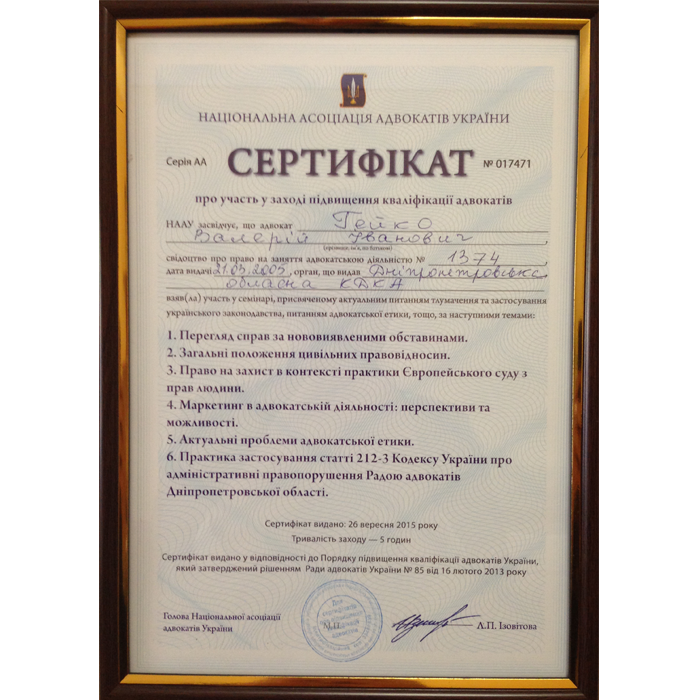 НАЦІОНАЛЬНА АСОЦІАЦІЯ АДВОКАТІВ УКРАЇНИ
Серія АА СЕРТИФІКАТ № 017471
про участь у заході підвищення кваліфікації адвокатів
НААУ засвідчує, що адвокат Гейко
Валерій Іванович,
(прізвище, ім'я, по батькові)
свідоцтво про право на заняття адвокатською діяльністю № 1374
дата видачі 21.03.2005, орган, що видав Дніпропетровська
обласна КДКА,
взяв(ла) участь у семінарі, присвяченому актуальним питанням тлумачення та застосування
українського законодавства, питанням адвокатської етики, тощо, за наступними темами:
1. Перегляд справ за нововиявленими обставинами.
2. Загальні положення цивільних правовідносин.
3. Право на захист в контексті практики Європейського суду з
прав людини.
4. Маркетинг в адвокатській діяльності: перспективи та
можливості.
5. Актуальні проблеми адвокатської етики.
6. Практика застосування статті 212-3 Кодексу України про
адміністративні правопорушення Радою адвокатів
Дніпропетровської області.
Сертифікат видано: 26 вересня 2015 року
Тривалість заходу — 5 годин
Сертифікат видано у відповідності до Порядку підвищення кваліфікації адвокатів України,
який затверджений рішенням Ради адвокатів України № 85 від 16 лютого 2013 року
Голова Національної асоціації
адвокатів України
М.П.
Л.П. Ізовітова